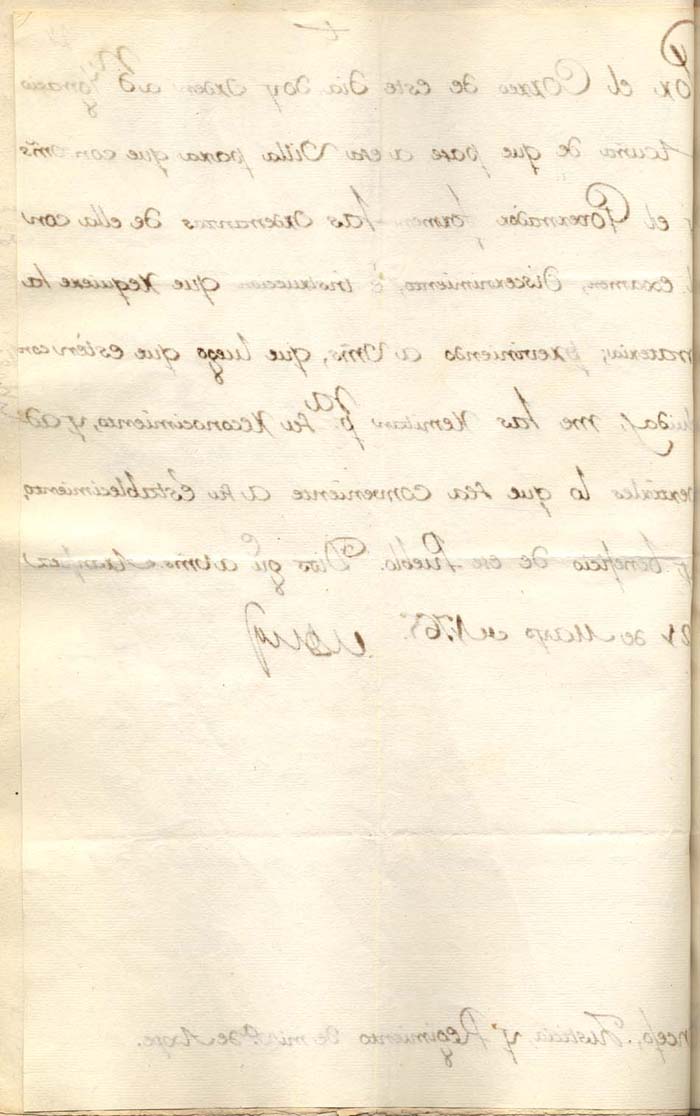 Por el Correo de este dia doy orden a Dn. Ygnacio
Acuña de que pase a esa Villa para que con Vms
y el Governador formen las ordenanzas de ella con
el examen, Discernimiento, è instruccion que requiere la
materia; previniendo a Vms, que luego que estèn con
cluidas, me las remitan pa. su reconocimiento, y ad
vertirles lo que sea conveniente a su establecimiento,
y beneficio de ese Pueblo. Dios gue. a Vms. Aranjuez
de Mayo de 1765.
Concejo, Justicia, y Regimiento de mi Va. de